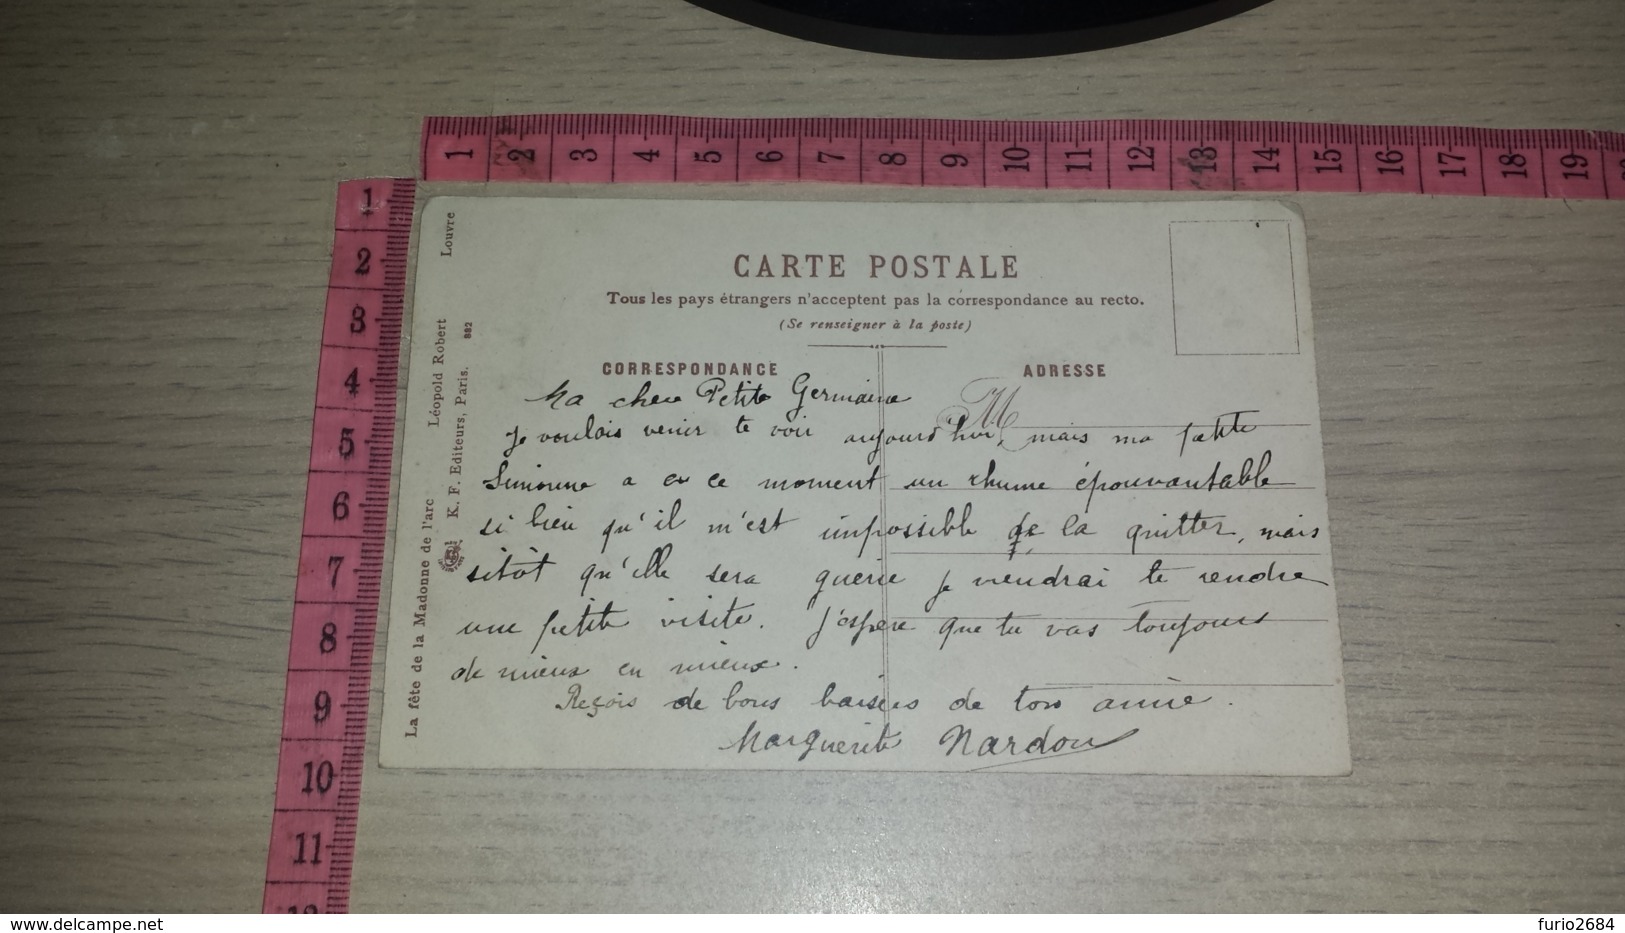 1 2 3 4 5 6 7 8 9 10 11 12 13 14 15 16 17 18 19
1
2
3
4
5
6
7
8
9
10
11
12
La fête de la Madonne de l'arc
Léopold Robert
Louvre
K. F. Editeurs, Paris.
882
CARTE POSTALE
Tous les pays étrangers n'acceptent pas la correspondance au recto.
(Se renseigner à la poste)
CORRESPONDANCE
ADRESSE
M
Ma chere Petite Germaine
Je voulais venir te voir aujourd'hui, mais ma petite
Simonne a en ce moment un rhume épouvantable
si bien qu'il m'est impossible de la quitter, mais
sitôt qu'elle sera guerie je viendrai te rendre
une petite visite. J'espère que tu vas toujours
de mieux en mieux.
Reçois de bons baisers de ton amie.
Marguerite Nardon
delcampe.net
furio2684